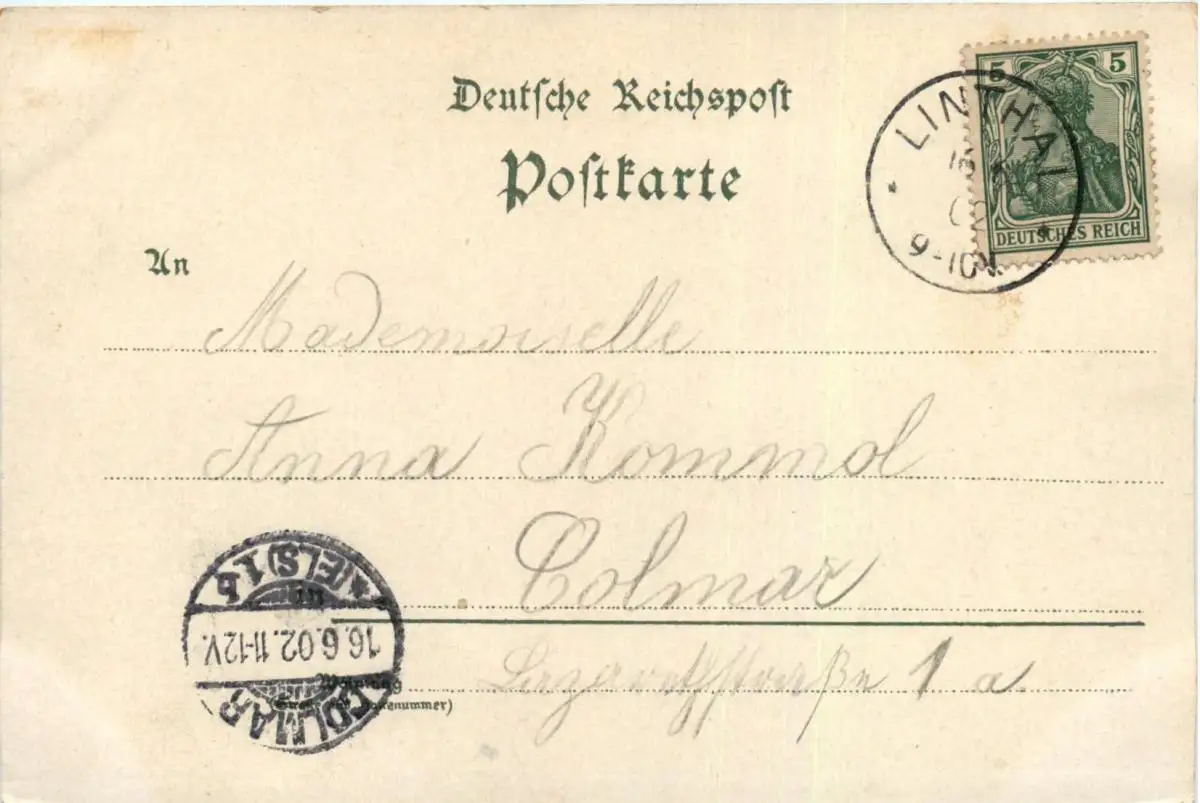 Deutsche Reichspost
Postkarte
5 5
DEUTSCHES REICH
LINTHAL
16
02
9-10 V.
An
Mademoiselle
Anna Kommol
Colmar
1 a.
Wohnung
(Straße und Hausnummer)
COLMAR
16.6.02.11-12V.
(ELS) 1 b